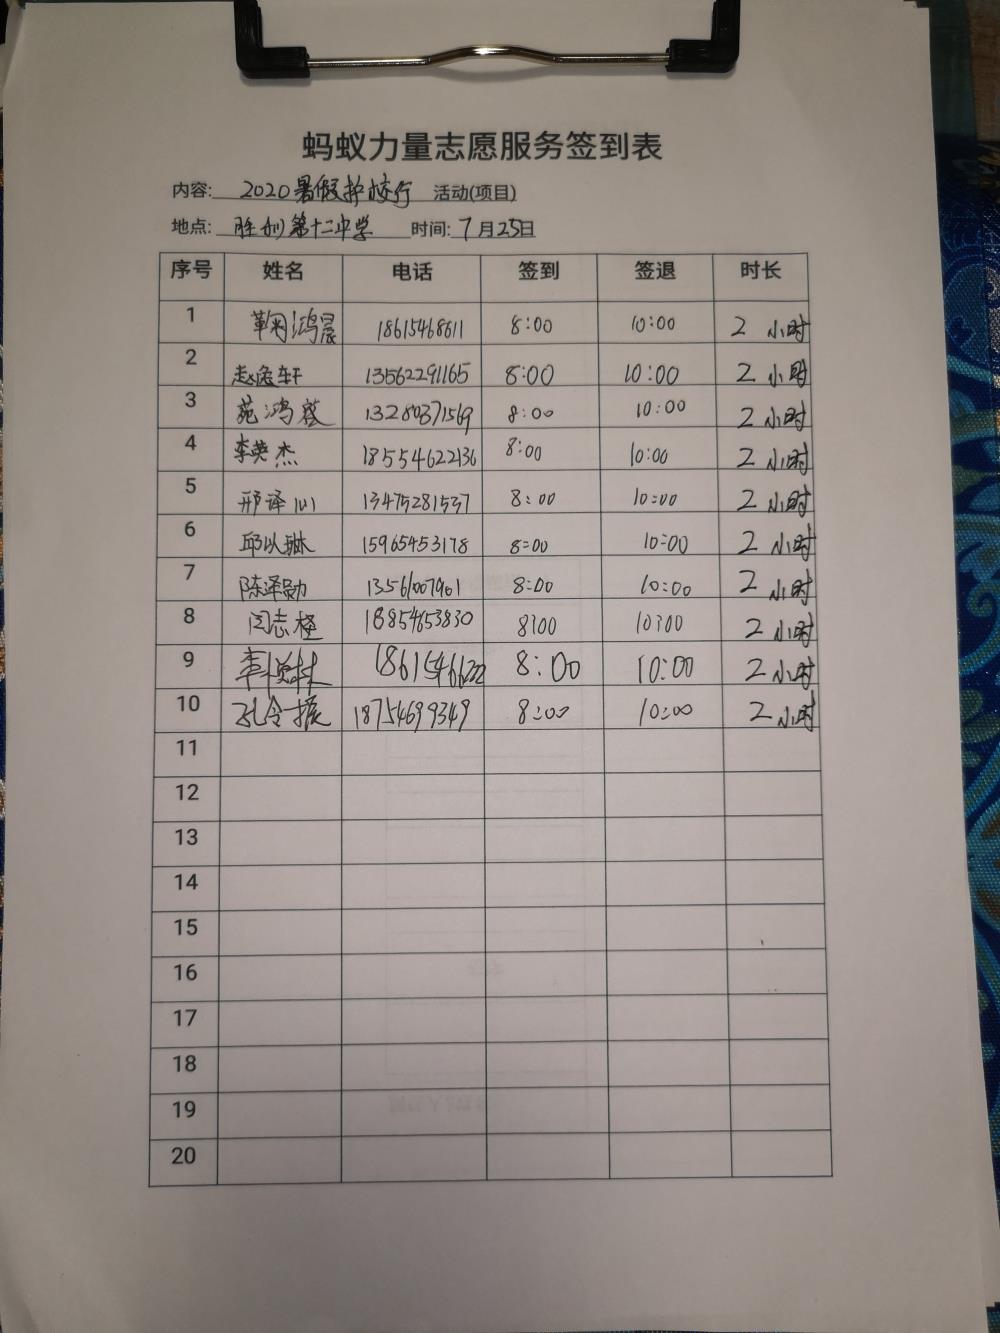 蚂蚁力量志愿服务签到表
内容: 2020暑假护校行 活动(项目)
地点: 胜利第十二中学 时间: 7月25日
序号 姓名 电话 签到 签退 时长
1 鞠鸿晨 18615468611 8:00 10:00 2 小时
2 轩 13562291165 8:00 10:00 2 小时
3 苑鸿 13280371569 8:00 10:00 2 小时
4 李英杰 18554622136 8:00 10:00 2 小时
5 邢译心 13475281537 8:00 10:00 2 小时
6 邱以琳 15965453178 8:00 10:00 2 小时
7 陈泽勋 13561007901 8:00 10:00 2 小时
8 闫志 18854653830 8:00 10:00 2 小时
9 李 8:00 10:00 2 小时
10 孔令振 18754699349 8:00 10:00 2 小时
11
12
13
14
15
16
17
18
19
20